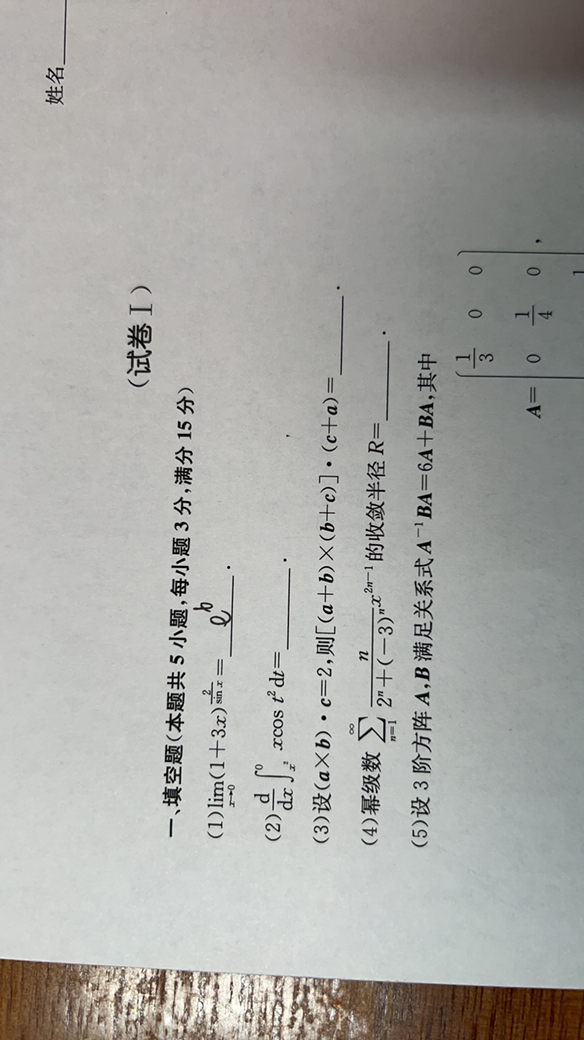 姓名
(试卷Ⅰ)
一、填空题(本题共 5 小题,每小题 3 分,满分 15 分)
(1) lim_{x→0}(1+3x)^{\frac{2}{\sin x}} = e^6.
(2) \frac{d}{dx}∫_{x^2}^{0} x cos t^2 dt = ______.
(3) 设(a×b)·c=2,则[(a+b)×(b+c)]·(c+a)= ______.
(4) 幂级数 ∑_{n=1}^{∞} \frac{n}{2^n+(-3)^n}x^{2n-1} 的收敛半径 R= ______.
(5) 设 3 阶方阵 A,B 满足关系式 A^{-1}BA=6A+BA,其中
\frac{1}{3} 0 0
A= 0 \frac{1}{4} 0 ,
1